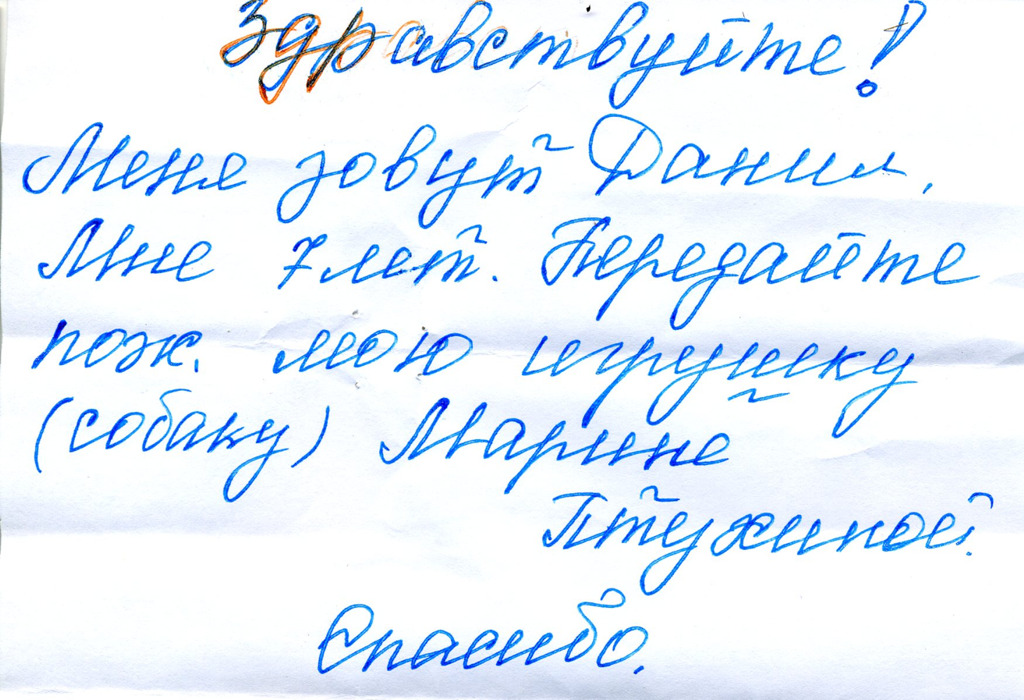 Здравствуйте!
Меня зовут Данил.
Мне 7 лет. Передайте
пож. мою игрушку
(собаку) Марине
Птухиной.
Спасибо.